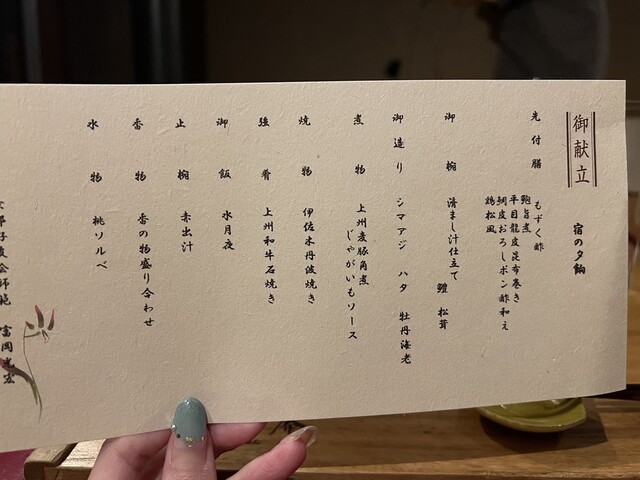 御献立
宿の夕餉
先付膳
もずく酢
鮑旨煮
平目龍皮昆布巻き
鯛皮おろしポン酢和え
鶏松風
御椀 清まし汁仕立て 鱧 松茸
御造り シマアジ ハタ 牡丹海老
煮物 上州麦豚角煮
じゃがいもソース
焼物 伊佐木丹波焼き
強肴 上州和牛石焼き
御飯 水月夜
止椀 赤出汁
香物 香の物盛り合わせ
水物 桃ソルベ
富岡